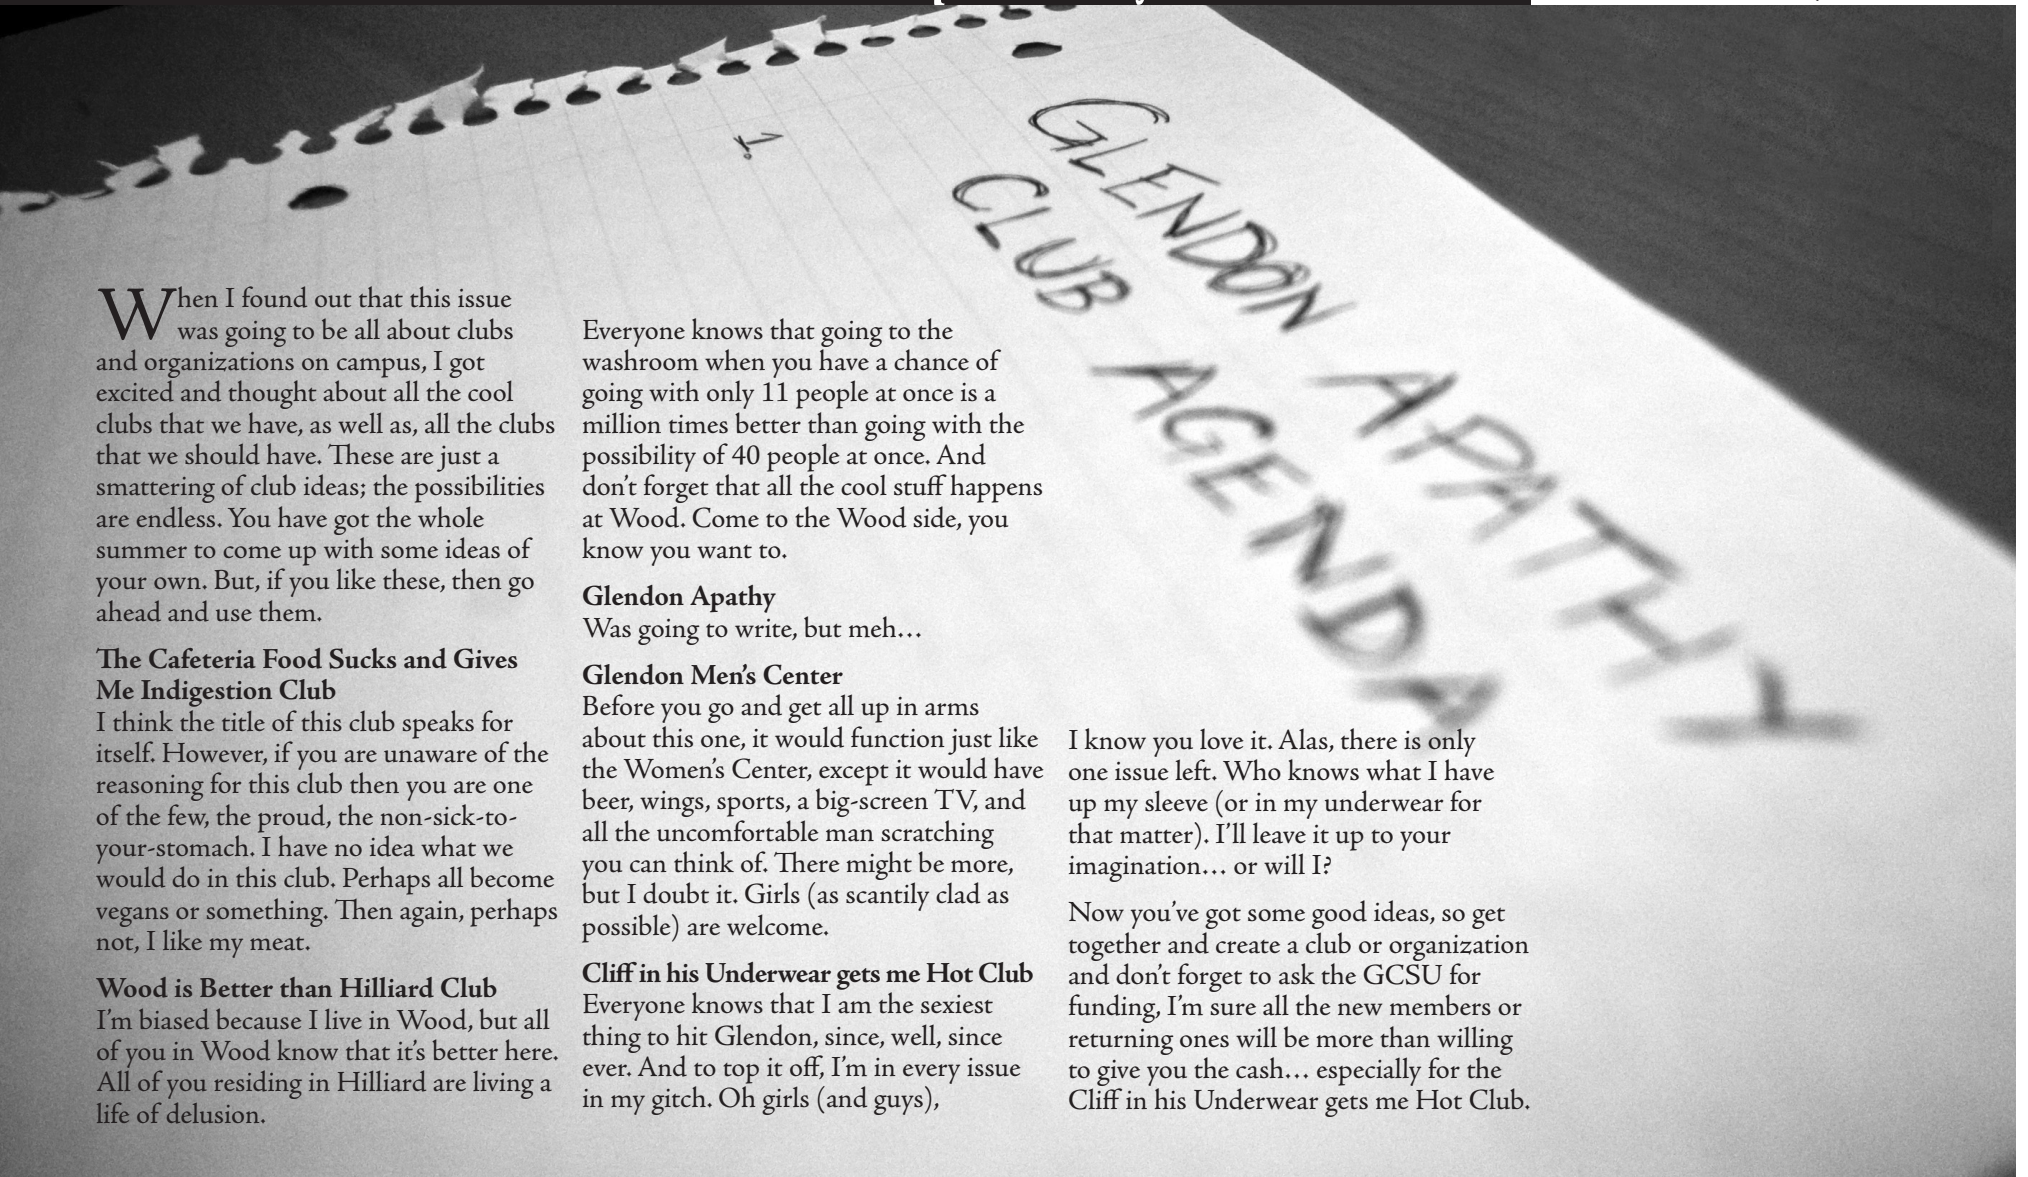 GLENDON APATHY
CLUB AGENDA
1.
When I found out that this issue
was going to be all about clubs
and organizations on campus, I got
excited and thought about all the cool
clubs that we have, as well as, all the clubs
that we should have. These are just a
smattering of club ideas; the possibilities
are endless. You have got the whole
summer to come up with some ideas of
your own. But, if you like these, then go
ahead and use them.
The Cafeteria Food Sucks and Gives
Me Indigestion Club
I think the title of this club speaks for
itself. However, if you are unaware of the
reasoning for this club then you are one
of the few, the proud, the non-sick-to-
your-stomach. I have no idea what we
would do in this club. Perhaps all become
vegans or something. Then again, perhaps
not, I like my meat.
Wood is Better than Hilliard Club
I'm biased because I live in Wood, but all
of you in Wood know that it's better here.
All of you residing in Hilliard are living a
life of delusion.
Everyone knows that going to the
washroom when you have a chance of
going with only 11 people at once is a
million times better than going with the
possibility of 40 people at once. And
don't forget that all the cool stuff happens
at Wood. Come to the Wood side, you
know you want to.
Glendon Apathy
Was going to write, but meh…
Glendon Men's Center
Before you go and get all up in arms
about this one, it would function just like
the Women's Center, except it would have
beer, wings, sports, a big-screen TV, and
all the uncomfortable man scratching
you can think of. There might be more,
but I doubt it. Girls (as scantily clad as
possible) are welcome.
Cliff in his Underwear gets me Hot Club
Everyone knows that I am the sexiest
thing to hit Glendon, since, well, since
ever. And to top it off, I'm in every issue
in my gitch. Oh girls (and guys),
I know you love it. Alas, there is only
one issue left. Who knows what I have
up my sleeve (or in my underwear for
that matter). I'll leave it up to your
imagination… or will I?
Now you've got some good ideas, so get
together and create a club or organization
and don't forget to ask the GCSU for
funding, I'm sure all the new members or
returning ones will be more than willing
to give you the cash… especially for the
Cliff in his Underwear gets me Hot Club.